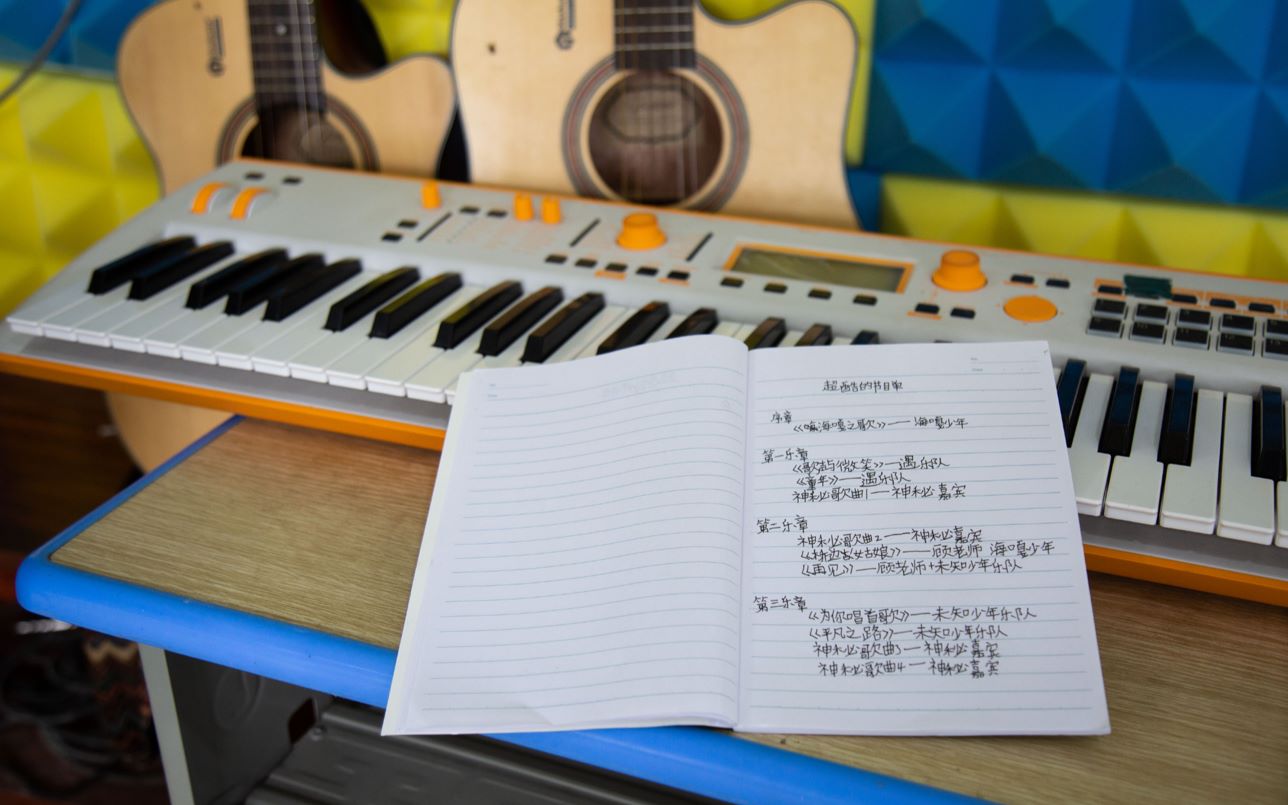 超酷的节目单
序章
《嗨海嘎之歌》——海嘎少年
第一乐章
《歌声与微笑》——遇乐队
《童年》——遇乐队
神秘歌曲1——神秘嘉宾
第二乐章
神秘歌曲2——神秘嘉宾
《桥边姑娘》——顾老师 海嘎少年
《再见》——顾老师+未知少年乐队
第三乐章
《为你唱首歌》——未知少年乐队
《平凡之路》——未知少年乐队
神秘歌曲3——神秘嘉宾
神秘歌曲4——神秘嘉宾